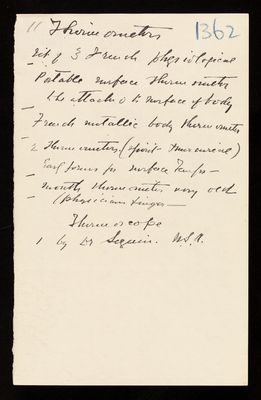 11 Thermometers 1362
Set of 3 French physiological
Portable surface thermometer
to attach to surface of body
French metallic body thermometer
2 Thermometers (spirit mercurial)
Early forms for surface Temps -
mouth thermometer very old
(physicians
Thermoscope
1 by Dr Seguin. U.S.A.